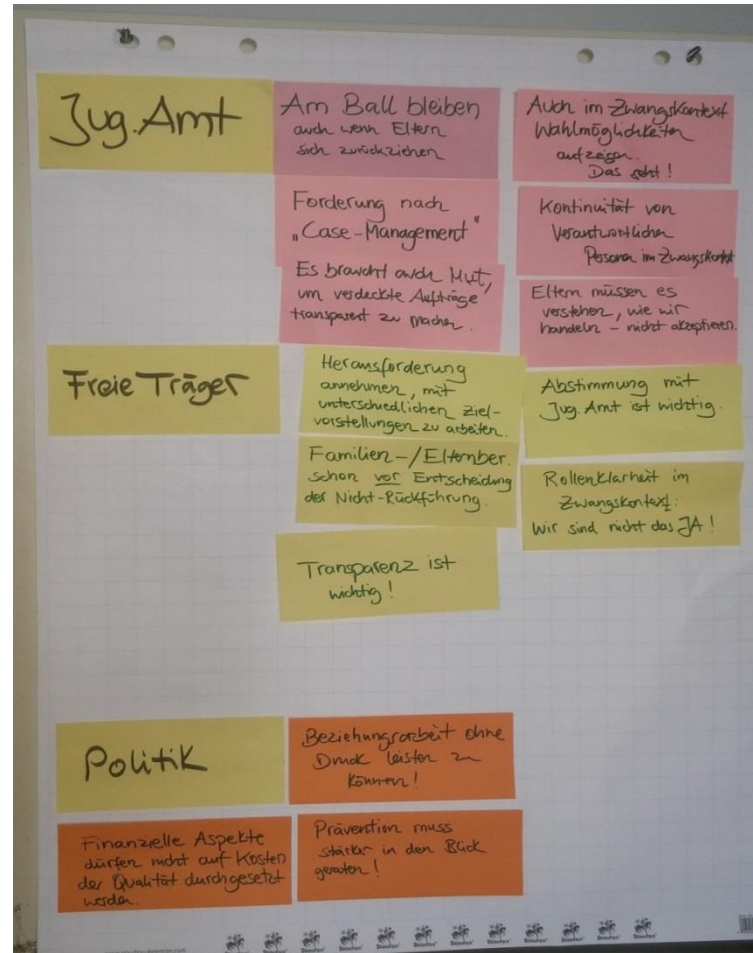 Jug. Amt
Am Ball bleiben
auch wenn Eltern
sich zurückziehen
Auch im Zwangskontext
Wahlmöglichkeiten
aufzeigen.
Das geht!
Forderung nach
„Case-Management"
Kontinuität von
Verantwortlichen
Personen im Zwangskontext
Es braucht auch Mut,
um verdeckte Aufträge
transparent zu machen.
Eltern müssen es
verstehen, wie wir
handeln – nicht akzeptieren.
Freie Träger
Herausforderung
annehmen, mit
unterschiedlichen Ziel-
vorstellungen zu arbeiten.
Abstimmung mit
Jug. Amt ist wichtig.
Familien-/Elternber.
schon vor Entscheidung
der Nicht-Rückführung.
Rollenklarheit im
Zwangskontext:
Wir sind nicht das JA!
Transparenz ist
wichtig!
Politik
Beziehungsarbeit ohne
Druck leisten zu
können!
Finanzielle Aspekte
dürfen nicht auf Kosten
der Qualität durchgesetzt
werden.
Prävention muss
stärker in den Blick
geraten!